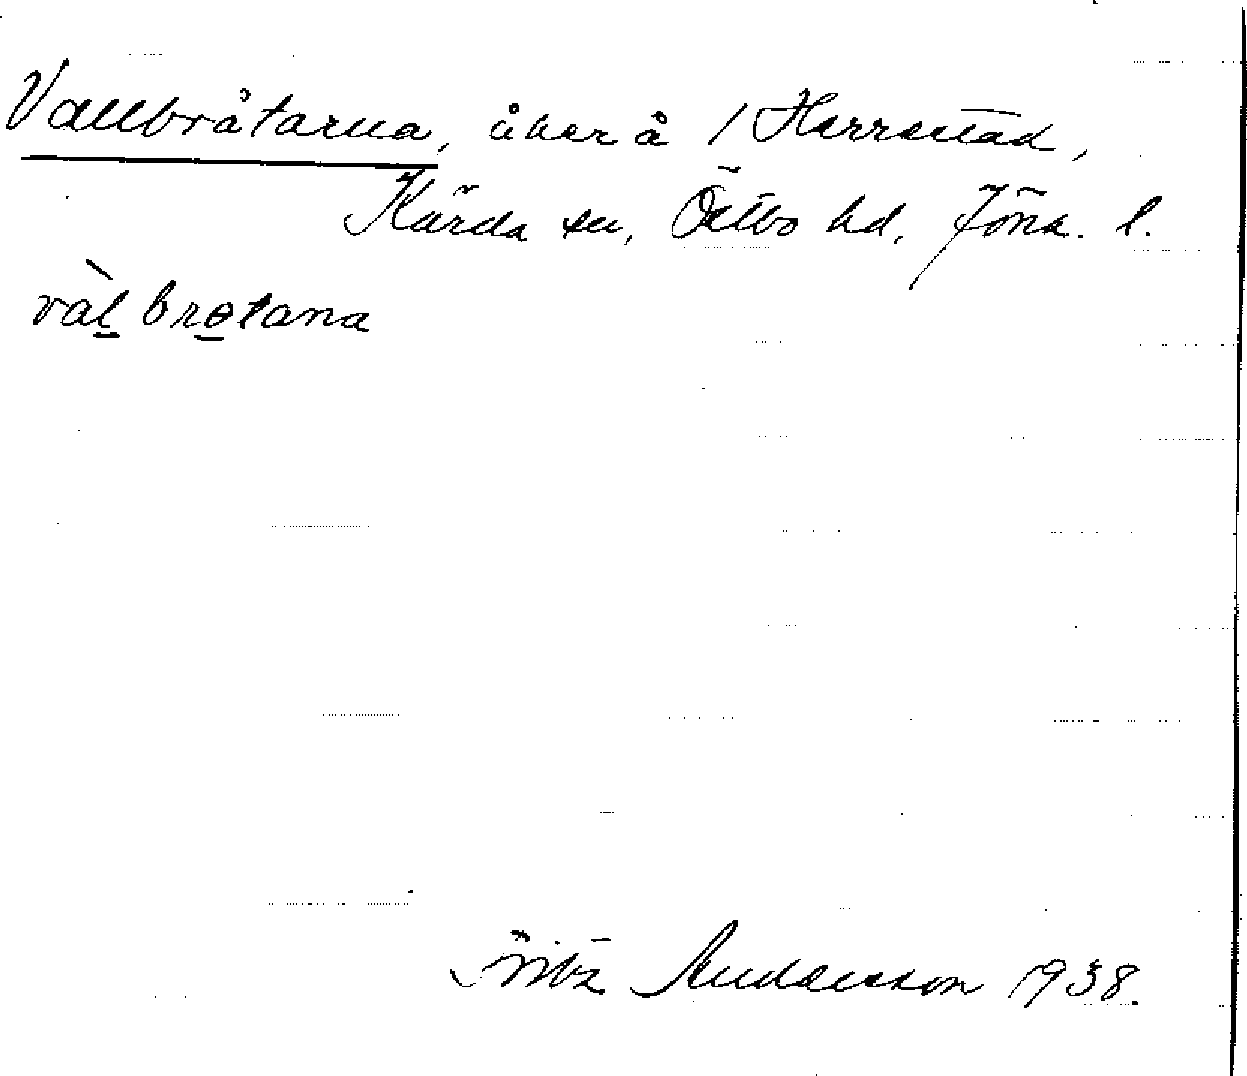 Vallbråtarna, åker å / Herrestad,
Kärda sn, Östbo hd, Jönk. l.
val brotana
Fritz Andersson 1938.